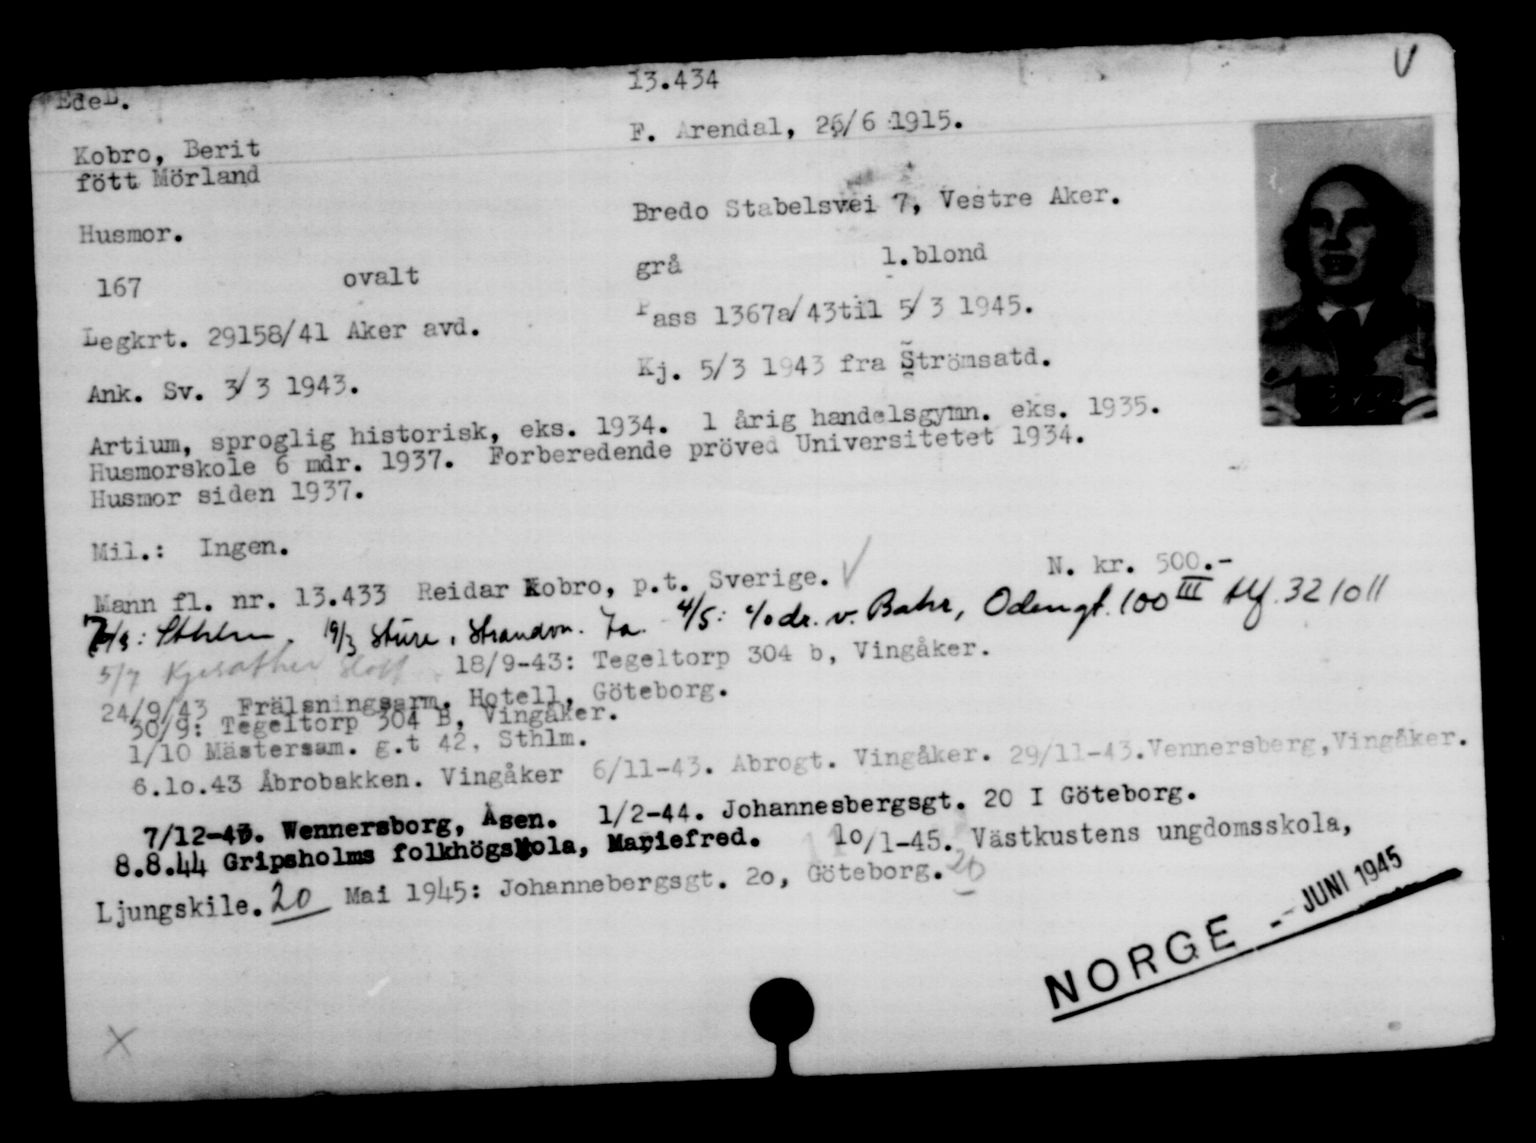 EdeL. 13.434 V
Kobro, Berit F. Arendal, 26/6 1915.
fött Mörland
Husmor. Bredo Stabelsvei 7, Vestre Aker.
167 ovalt grå l.blond
Legkrt. 29158/41 Aker avd. Pass 1367a/43til 5/3 1945.
Ank. Sv. 3/3 1943. Kj. 5/3 1943 fra Strömsatd.
Artium, sproglig historisk, eks. 1934. 1 årig handelsgymn. eks. 1935.
Husmorskole 6 mdr. 1937. Forberedende pröved Universitetet 1934.
Husmor siden 1937.
Mil.: Ingen. N. kr. 500.-
Mann fl. nr. 13.433 Reidar Kobro, p.t. Sverige. V
Sthlm. 19/3 Sture, Strandv. 7a. 4/5: c/o dr. v. Bahr, Odengt. 100 III tlf. 321011
5/7 18/9-43: Tegeltorp 304 b, Vingåker.
24/9/43 Frälsningsarm. Hotell, Göteborg.
30/9: Tegeltorp 304 B, Vingåker.
1/10 Mästersam. g.t 42, Sthlm.
6.10.43 Åbrobakken. Vingåker 6/11-43. Abrogt. Vingåker. 29/11-43.Vennersberg,Vingåker.
7/12-43. Wennersborg, Åsen. 1/2-44. Johannesbergsgt. 20 I Göteborg.
8.8.44 Gripsholms folkhögskola, Mariefred. 10/1-45. Västkustens ungdomsskola,
Ljungskile. 20 Mai 1945: Johannebergsgt. 2o, Göteborg. 20
NORGE - JUNI 1945
X